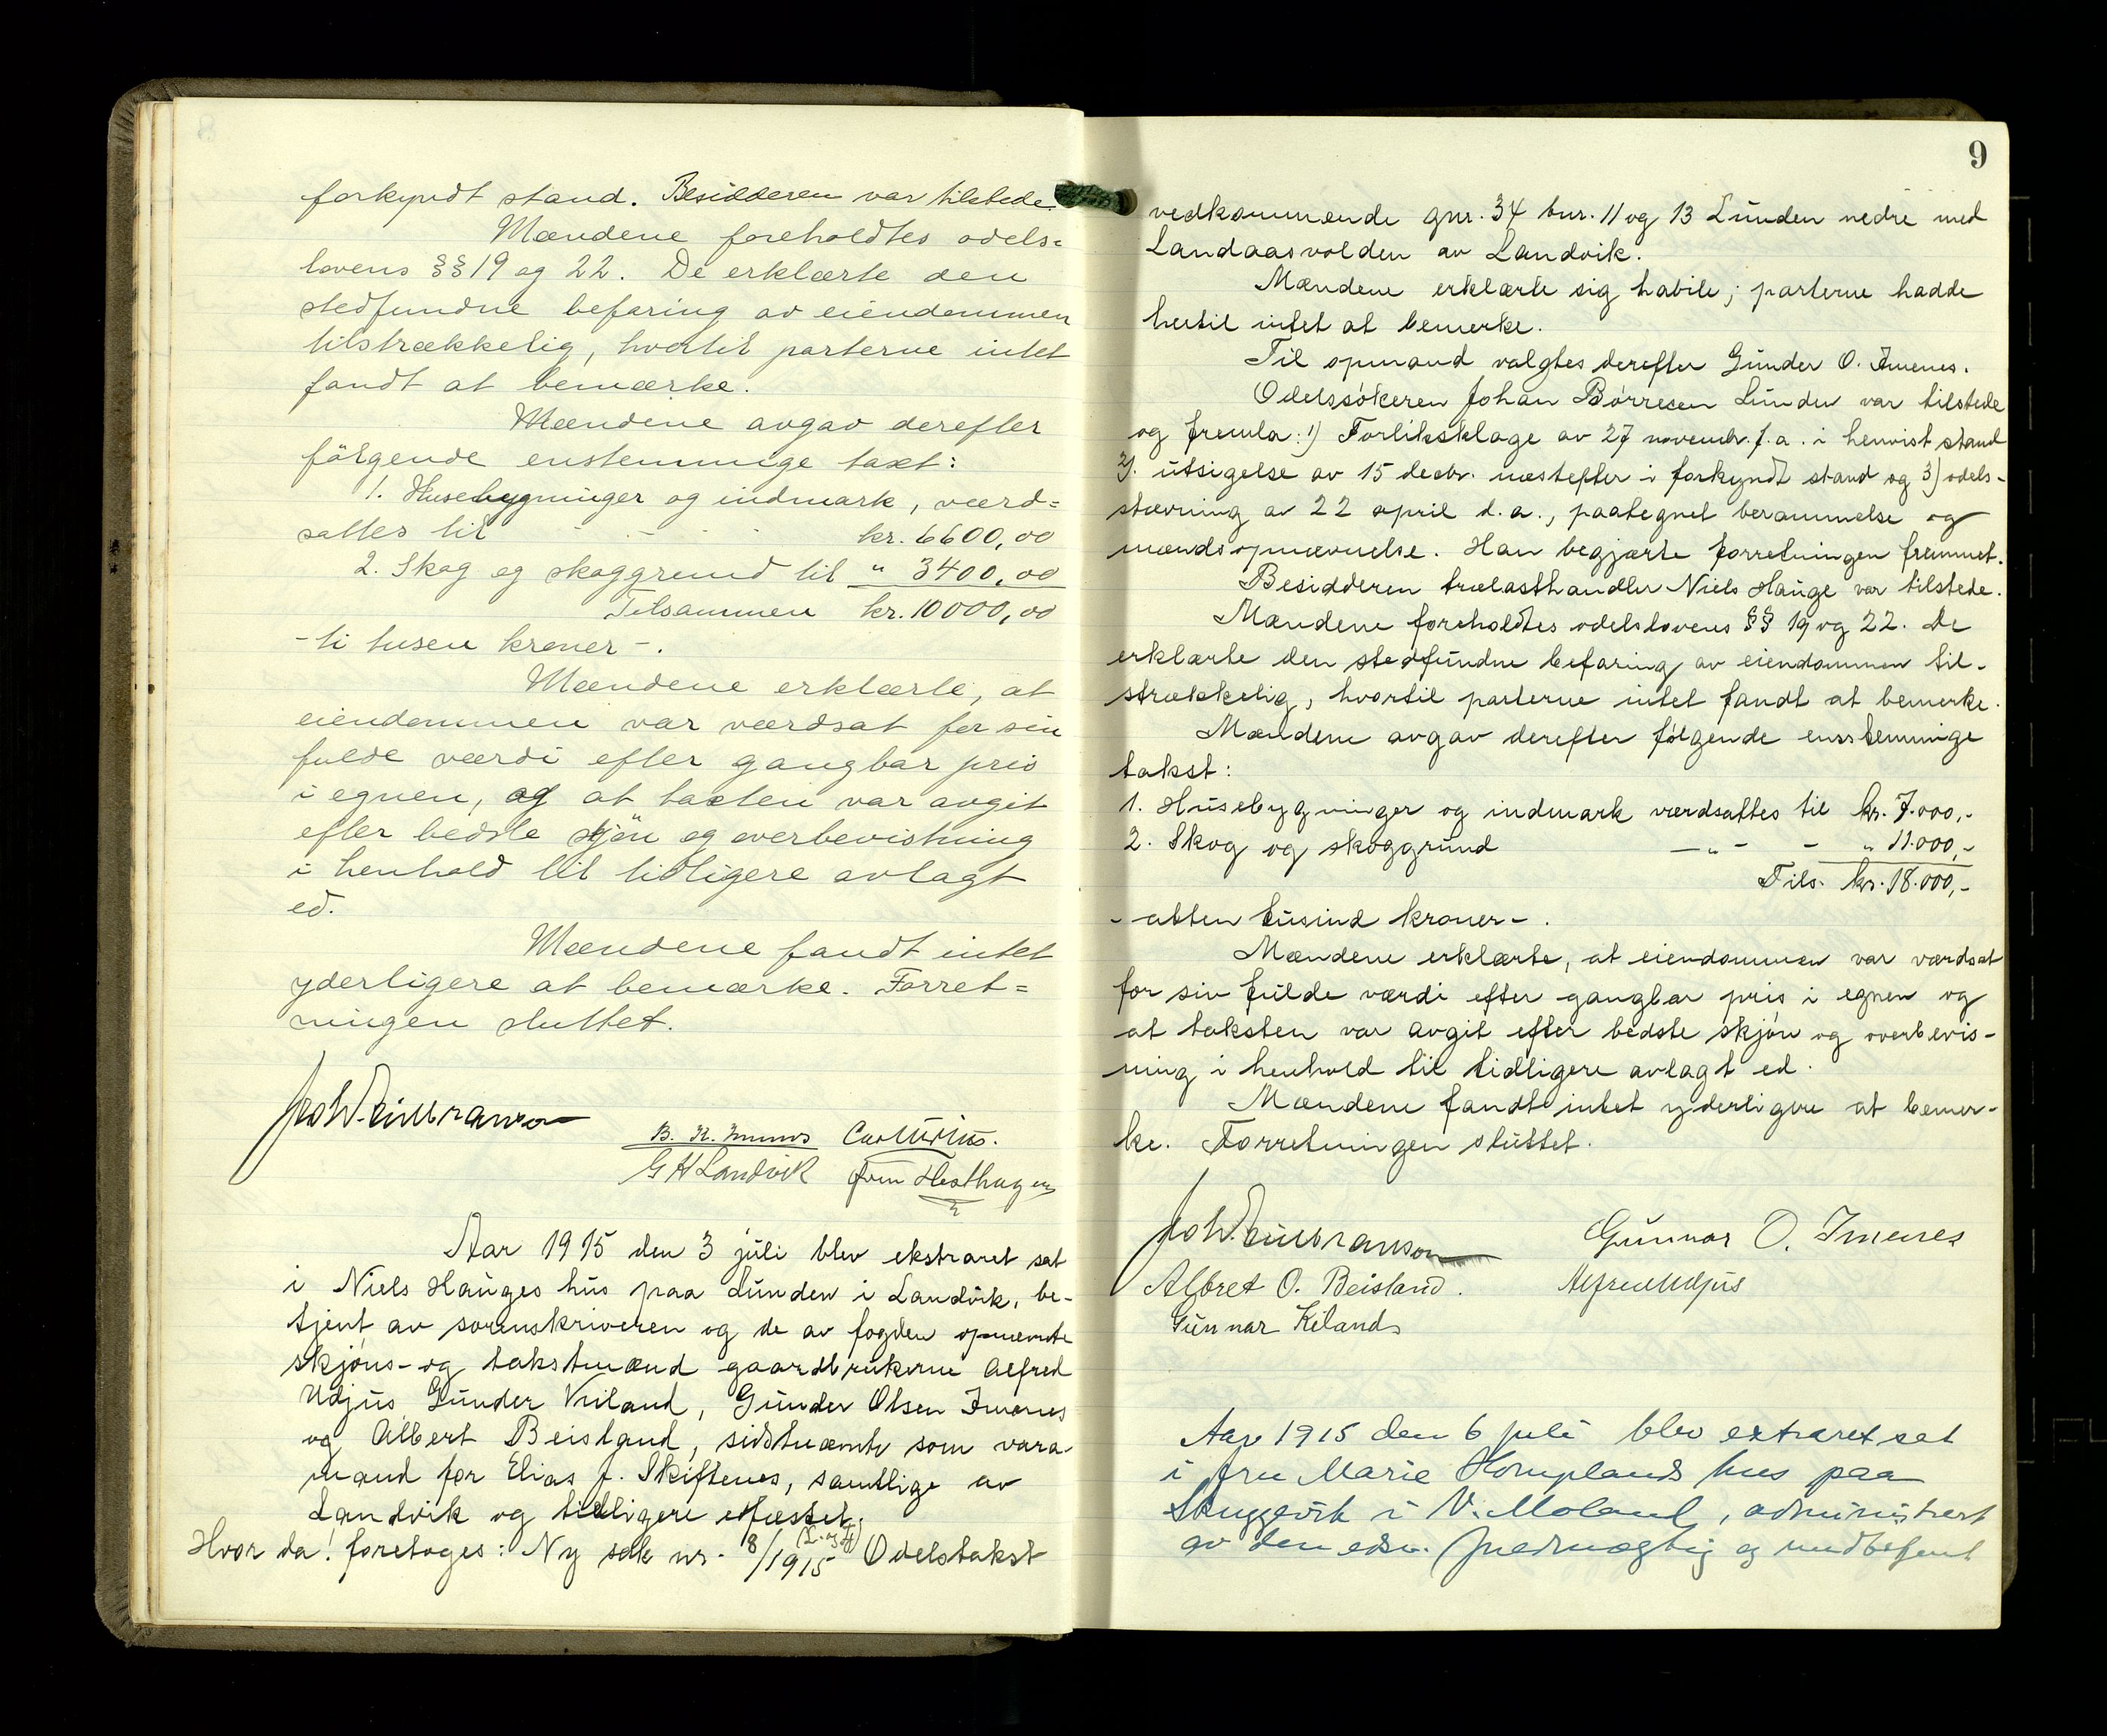 forkyndt stand. Besidderen var tilstede.
Mændene foreholdtes odels=
lovens §§ 19 og 22. De erklærte den
stedfundne befaring av eiendommen
tilstrækkelig, hvortil parterne intet
fandt at bemærke.
Mændene avgav derefter
følgende enstemmige taxt:
1. Husebygninger og indmark, værd=
sattes til - - - kr. 6600,00
2. Skog og skoggrund til " 3400,00
Tilsammen kr. 10000,00
- ti tusen kroner -.
Mændene erklærte, at
eiendommen var værdsat for sin
fulde værdi efter gangbar pris
i egnen, og at taxten var avgit
efter bedste skjøn og overbevistning
i henhold til tidligere avlagt
ed.
Mændene fandt intet
yderligere at bemærke. Forret=
ningen sluttet.
B. K. Imenes
G H Landvik Hesthagen
Aar 1915 den 3 juli blev ekstraret sat
i Niels Hauges hus paa Lunden i Landvik, be-
tjent av sorenskriveren og de av fogden opnævnte
skjøns- og takstmænd gaardbrukerne Alfred
Udjus Gunder Kiland, Gunder Olsen Imenes
og Albert Beisland, sidstnævnte som vara-
mand for Elias J. Skiftenes, samtlige av
Landvik og tidligere edfæstet.
Hvor da! foretoges: Ny sak nr. 18/1915 (L. og Fj) Odelstakst
9
vedkommende gnr. 34 bnr. 11 og 13 Lunden nedre med
Landaasvolden av Landvik.
Mændene erklærte sig habile; parterne hadde
hertil intet at bemerke.
Til opmand valgtes derefter Gunder O. Imenes.
Odelssøkeren Johan Børresen Lunden var tilstede
og fremla: 1) Forliksklage av 27 novembr. f.a. i henvist stand
2). utsigelse av 15 decbr. næstefter i forkyndt stand og 3) odels-
stævning av 22 april d.a., paategnet berammelse og
mændsopnævnelse. Han begjærte forretningen fremmet.
Besidderen trælasthandler Niels Hauge var tilstede.
Mændene foreholdtes odelslovens §§ 19 og 22. De
erklærte den stedfundne befaring av eiendommen til-
strækkelig, hvortil parterne intet fandt at bemerke.
Mændene avgav derefter følgende ensstemmige
takst:
1. Husebygninger og indmark værdsattes til kr. 7.000,-
2. Skog og skoggrund -"- - " 11.000,-
Tils. kr. 18.000,-
- atten tusind kroner -.
Mændene erklærte, at eiendommen var værdsat
for sin fulde værdi efter gangbar pris i egnen og
at taksten var avgit efter bedste skjøn og overbevis-
ning i henhold til tidligere avlagt ed.
Mændene fandt intet yderligere at bemer-
ke. Forretningen sluttet.
Gunnar O. Imenes
Albret O. Beisland. Alfred Udjus
Gunnar Kiland
Aar 1915 den 6 juli blev extraret sat
i fru Marie Homplands hus paa
Skuggevik i V. Moland, administrert
av den edsv. fuldmægtig og medbetjent